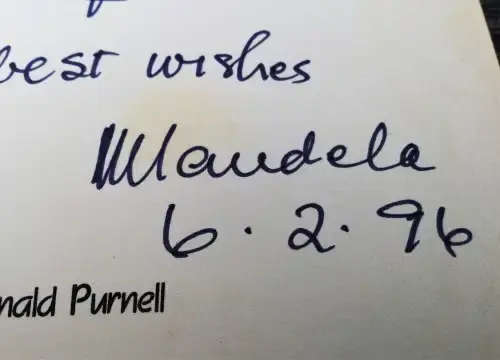 best wishes
Mandela
6.2.96
nald Purnell